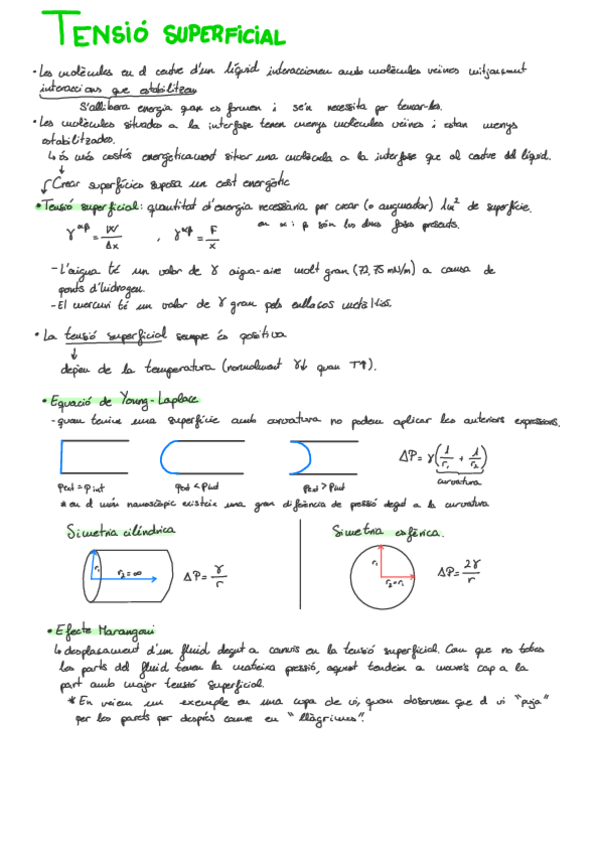 TENSIÓ SUPERFICIAL
• Les molècules en el centre d'un líquid interaccionen amb molècules veïnes mitjançant
interaccions que estabilitzen
S'allibera energia quan es formen i se'n necessita per trencar-les.
• Les molècules situades a la interfase tenen menys molècules veïnes i estan menys
estabilitzades.
↳ és més costós energèticament situar una molècula a la interfase que al centre del líquid.
↓
Crear superfícies suposa un cost energètic
• Tensió superficial: quantitat d'energia necessària per crear (o augmentar) 1m² de superfície.
γ^αβ = W/Δx , γ^αβ = F/x on α i β són les dues fases presents.
- L'aigua té un valor de γ aigua-aire molt gran (72,75 mN/m) a causa de
ponts d'hidrogen.
- El mercuri té un valor de γ gran pels enllaços metàl·lics.
• La tensió superficial sempre és positiva
↓
depèn de la temperatura (normalment γ↓ quan T↑).
• Equació de Young-Laplace
- quan tenim una superfície amb curvatura no podem aplicar les anteriors expressions.
ΔP = γ(1/r₁ + 1/r₂)
curvatura
Pext = Pint Pext < Pint Pext > Pint
* en el món nanoscòpic existeix una gran diferència de pressió degut a la curvatura
Simetria cilíndrica Simetria esfèrica.
r₁ r₂ = ∞ ΔP = γ/r r₁ r₂ = r₁ ΔP = 2γ/r
• Efecte Marangoni
↳ desplaçament d'un fluid degut a canvis en la tensió superficial. Com que no totes
les parts del fluid tenen la mateixa pressió, aquest tendeix a moure's cap a la
part amb major tensió superficial.
* En veiem un exemple en una copa de vi, quan observem que el vi "puja"
per les parets per després caure en "llàgrimes".